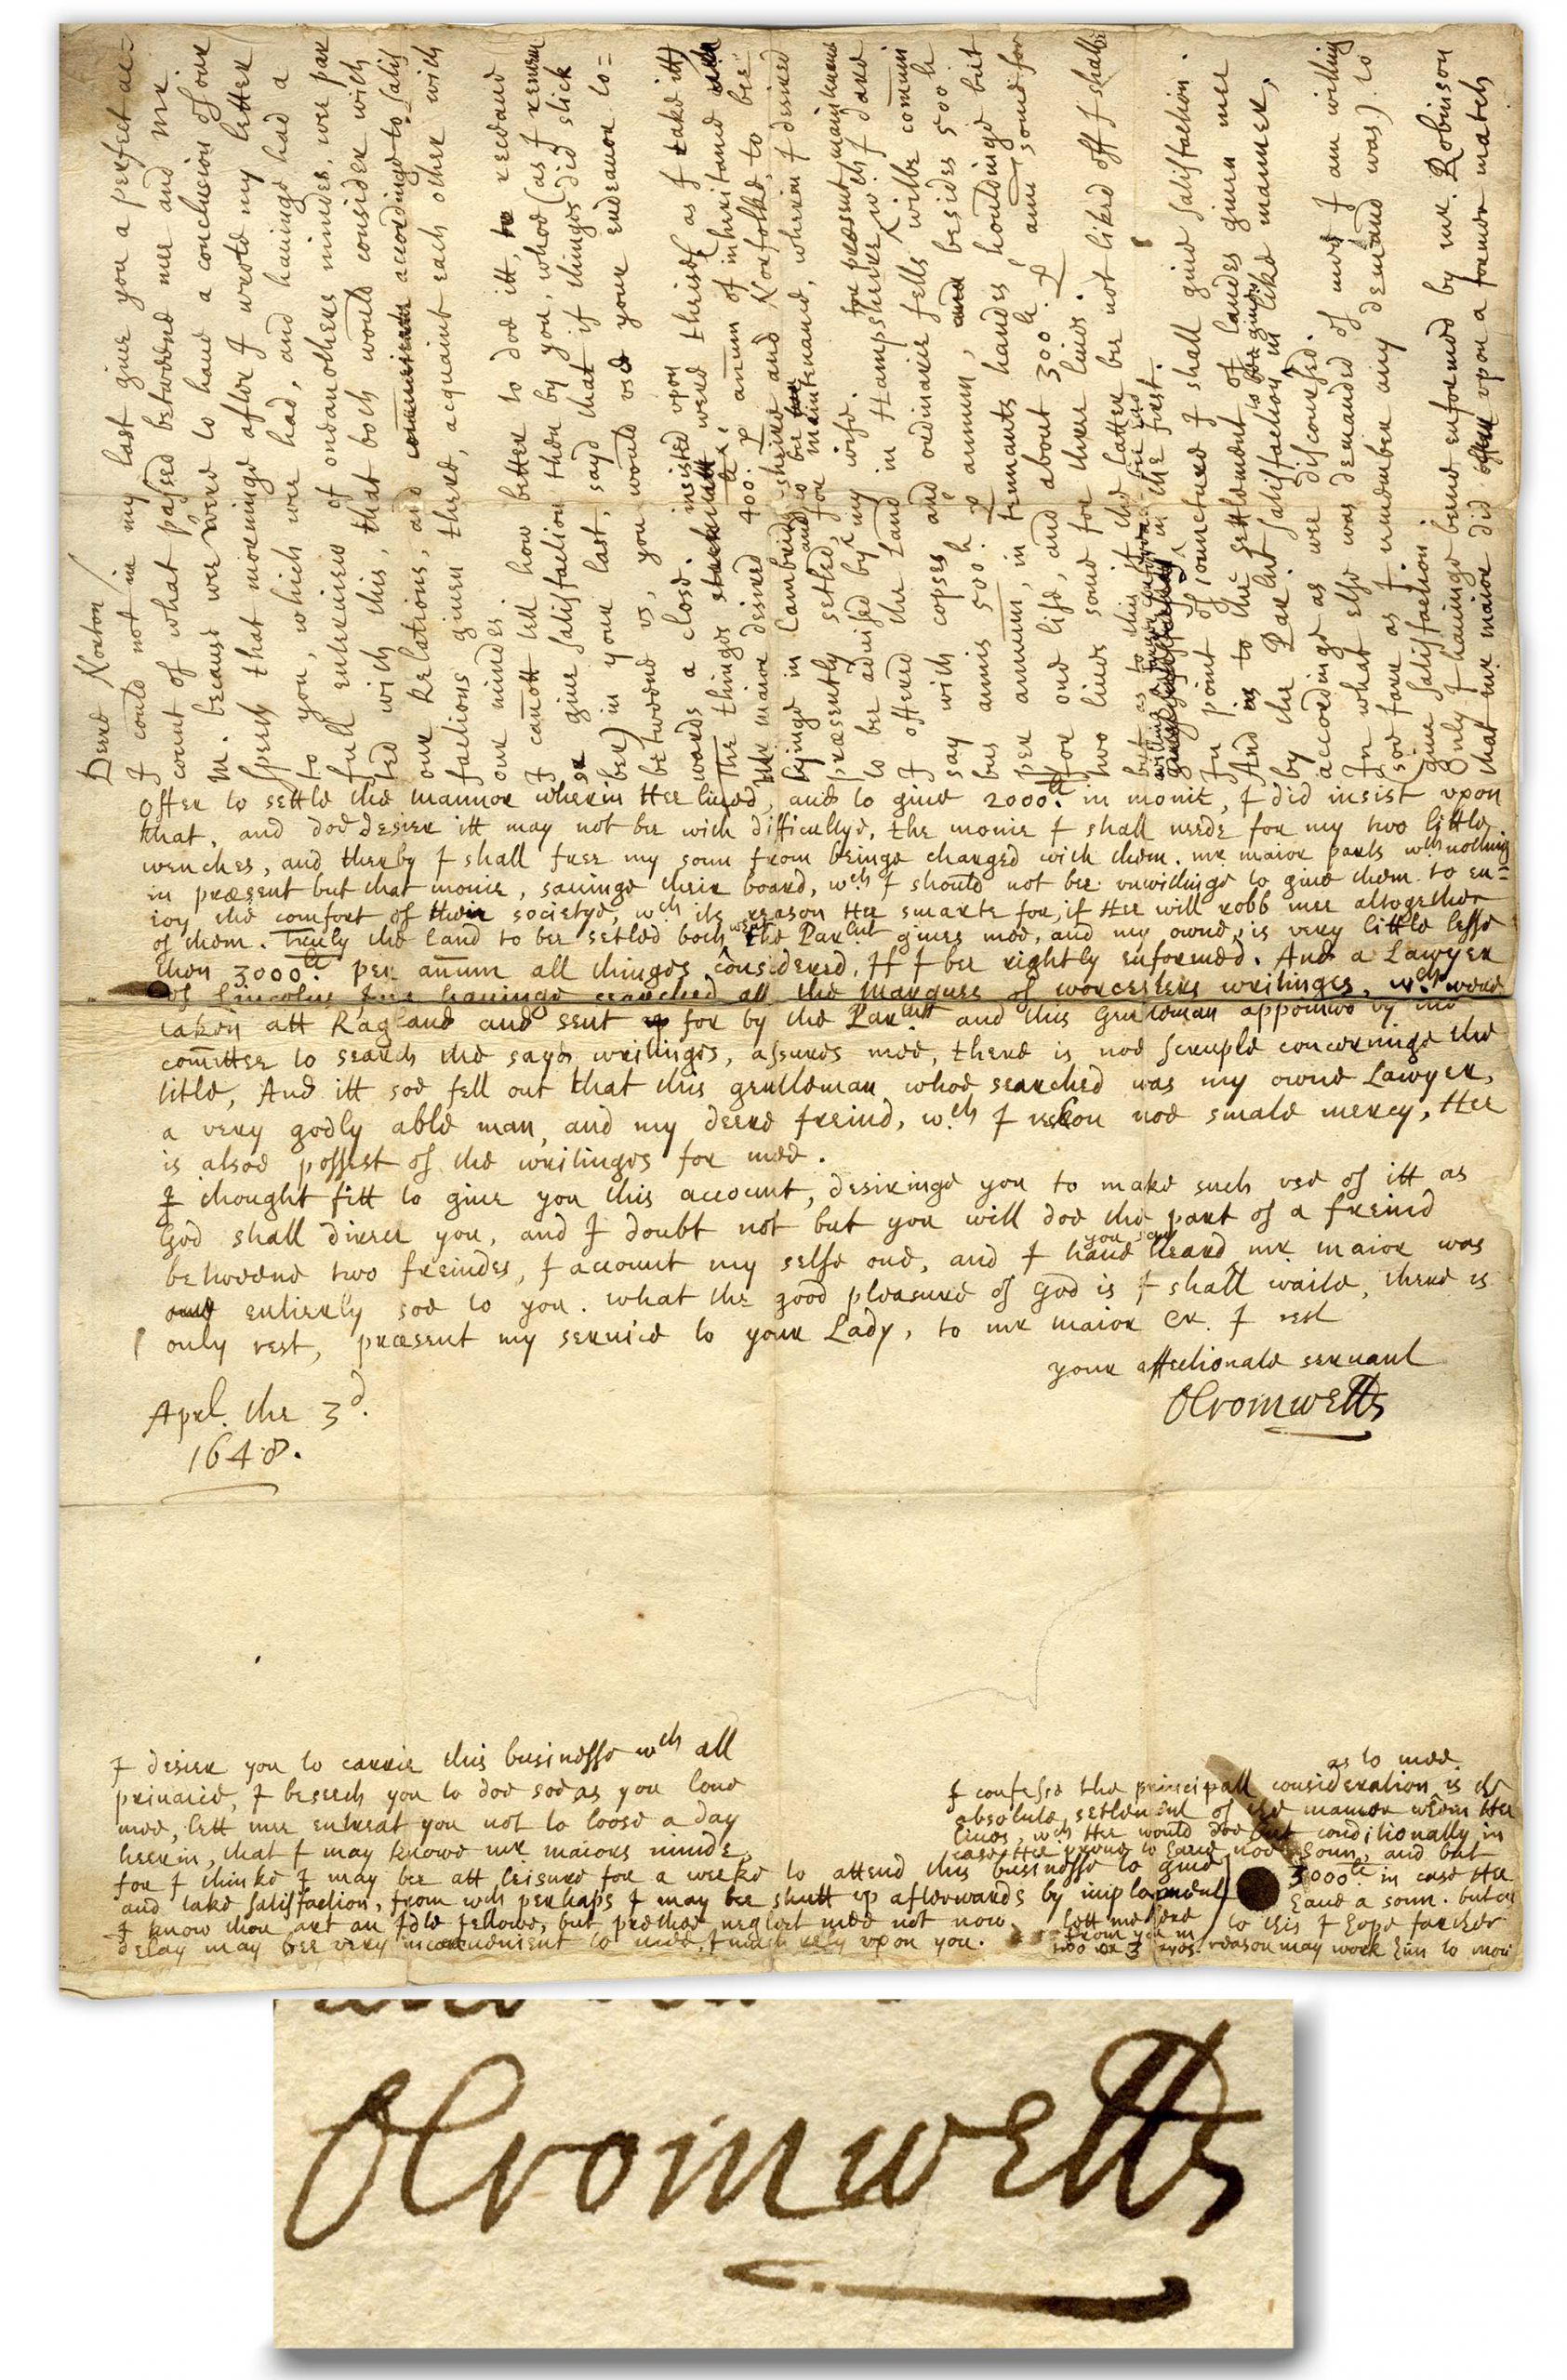 Deere Norton
I could not in my last give you a perfect ac=
count of what passed betweene mee and Mr
M. because wee were to have a conclusion of our
speech that morninge after I wrote my letter
to you, which wee had, and havinge had a
full enterview of oneanothers mindes, wee par
ted with this, that both would consider with
our relations, and accordinge to satis
factions given there, acquaint each other with
our mindes.
I cannott tell how better to doe itt, receave
give satisfaction then by you, whoe (as I remem
ber) in your last, sayd that if thinges did stick
betweene us, you would use your endeavor to=
wards a close.
The thinges insisted upon were theise (as I take itt)
Mr maior desired 400li p anum of inheritance
lyinge in Cambridg shire and Norfolke, to bee
presently settled, and to bee for maintenance, wherin I desired
to bee advised by my wife.
I offered the land in Hampsheire for present maintenance (wch I dare
say with copses and ordinarie fells wilbe commun
bus annis 500li p annum, besides 500li
per annum, in tennants handes houldinge but
for one life, and about 300li p anum some for
two lives some for three lives.
but as to this if the latter bee not liked off I shalbe
in the first.
In point of iouncture I shall give satisfaction.
And as to the settlement of landes given mee
by the Parlnt satisfaction to bee given in like manner,
accordinge as wee discoursed.
In what else was demanded of mee I am willing
(soe farr as I remember any demand was) to
give satisfaction.
Only I havinge beene enformed by mr. Robinson
that mr maior did upon a former match
offer to settle the mannor wherin Hee lived, and to give 2000li in monie, I did insist upon
that, and doe desier itt may not bee with difficultye, the monie I shall neede for my two little
wenches, and therby I shall free my sonn from beinge charged with them. mr maior parts wch nothing
in præsent but that monie, savinge their board, wch I should not bee unwillinge to give them to en=
ioy the comfort of their societye, wch its reason Hee smarte for, if Hee will robb mee altogether
of them. Truly the land to bee setled both what the Parlnt gives mee, and my owne, is very little lesse
then 3000li per anum all thinges considered, If I bee rightly enformed. And a Lawyer
of Lincolns Inn havinge searched all the Marquess of Worcesters writinges, wch were
taken att Ragland and sent for by the Parlntt and this Gentleman appointed by the
comitter to search the sayd writinges, assures mee, there is noe scruple concerninge the
title, And itt soe fell out that this gentleman whoe searched was my owne Lawyer,
a very godly able man, and my deere freind, wch I reckon noe smale mercy, Hee
is alsoe possest of the writinges for mee.
I thought fitt to give you this account, desiringe you to make such use of itt as
God shall direct you, and I doubt not but you will doe the part of a freind
betweene two freindes, I account my selfe one, and I have heard you say mr maior was
entierly soe to you. what the good pleasure of God is I shall waite, there is
only rest, præsent my service to your Lady, to mr maior &c. I rest
your affectionate servant
OCromwell
Aprl. the 3d.
1648.
I desier you to carrie this businesse wth all
privacie, I beseech you to doe soe as you love
mee, lett mee entreat you not to loose a day
heerin, that I may knowe mr maiors minde,
for I thinke I may bee att leisure for a weeke to attend this businesse to give
and take satisfaction, from wch perhaps I may bee shutt up afterwards by imployment
I know thou art an Idle fellowe, but prethee neglect mee not now,
delay may bee very inconvenient to mee, I much rely upon you.
Lett me heere
from you in
two or 3 dayes.
I confesse the principall consideration as to mee is the
absolute setlement of the mannor wherin Hee
lives, wch Hee would doe but conditionally in
case Hee prove to have noe sonn, and but
3000li in case Hee
have a sonn. but as
to this I hope farther
reason may work him to more
OCromwell